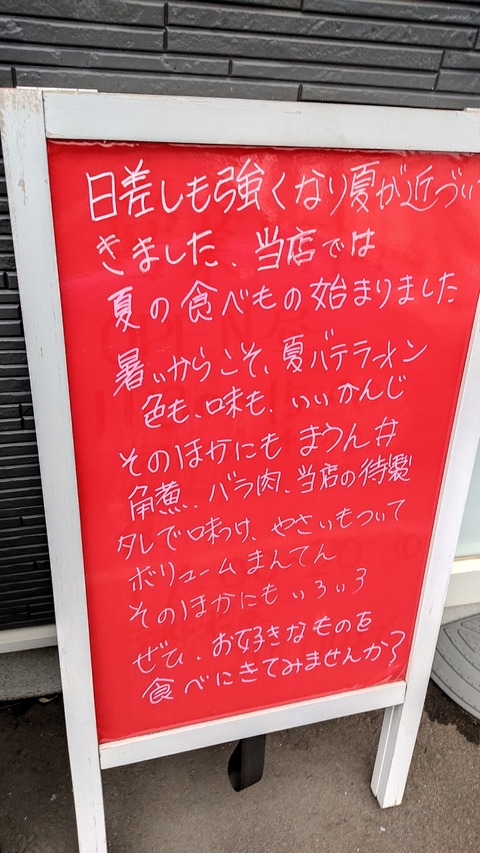 日差しも強くなり夏が近づい
きました、当店では
夏の食べもの始まりました
暑いからこそ、夏バテラーメン
色も、味も、いいかんじ
そのほかにも まうん丼
角煮、バラ肉、当店の特製
タレで味つけ、やさいもついて
ボリュームまんてん
そのほかにも いろいろ
ぜひ、お好きなものを
食べにきてみませんか?